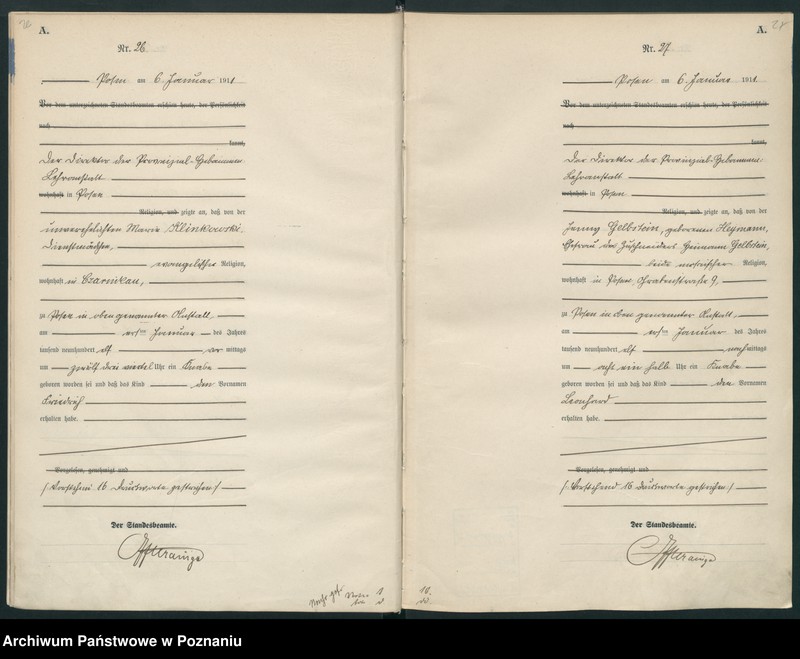 26
A.
Nr. 26
Posen am 6. Januar 1911.
Vor dem unterzeichneten Standesbeamten erschien heute, der Persönlichkeit
nach
kannt,
Der Direktor der Provinzial-Hebammen
Lehranstalt
wohnhaft in Posen
Religion, und zeigte an, daß von der
unverehelichten Marie Klinkowski
Dienstmädchen,
evangelischer Religion,
wohnhaft in Czarnikau,
zu Posen in oben genannter Anstalt,
am ersten Januar des Jahres
tausend neunhundert elf vormittags
um zwölf drei viertel Uhr ein Knabe
geboren worden sei und daß das Kind den Vornamen
Friedrich
erhalten habe.
Vorgelesen, genehmigt und
/ Vorstehend 16 Druckworte gestrichen /
Der Standesbeamte.
A.
Nr. 27.
Posen am 6. Januar 1911.
Vor dem unterzeichneten Standesbeamten erschien heute, der Persönlichkeit
nach
kannt,
Der Direktor der Provinzial-Hebammen
Lehranstalt
wohnhaft in Posen
Religion, und zeigte an, daß von der
Jenny Gelbstein, geborenen Heymann,
Ehefrau des Zuschneiders Heimann Gelbstein,
beide mosaischer Religion,
wohnhaft in Posen, Grabenstraße 9,
zu Posen in oben genannter Anstalt,
am ersten Januar des Jahres
tausend neunhundert elf nachmittags
um acht ein halb Uhr ein Knabe
geboren worden sei und daß das Kind den Vornamen
Leonhard
erhalten habe.
Vorgelesen, genehmigt und
/ Vorstehend 16 Druckworte gestrichen /
Der Standesbeamte.
Archiwum Państwowe w Poznaniu